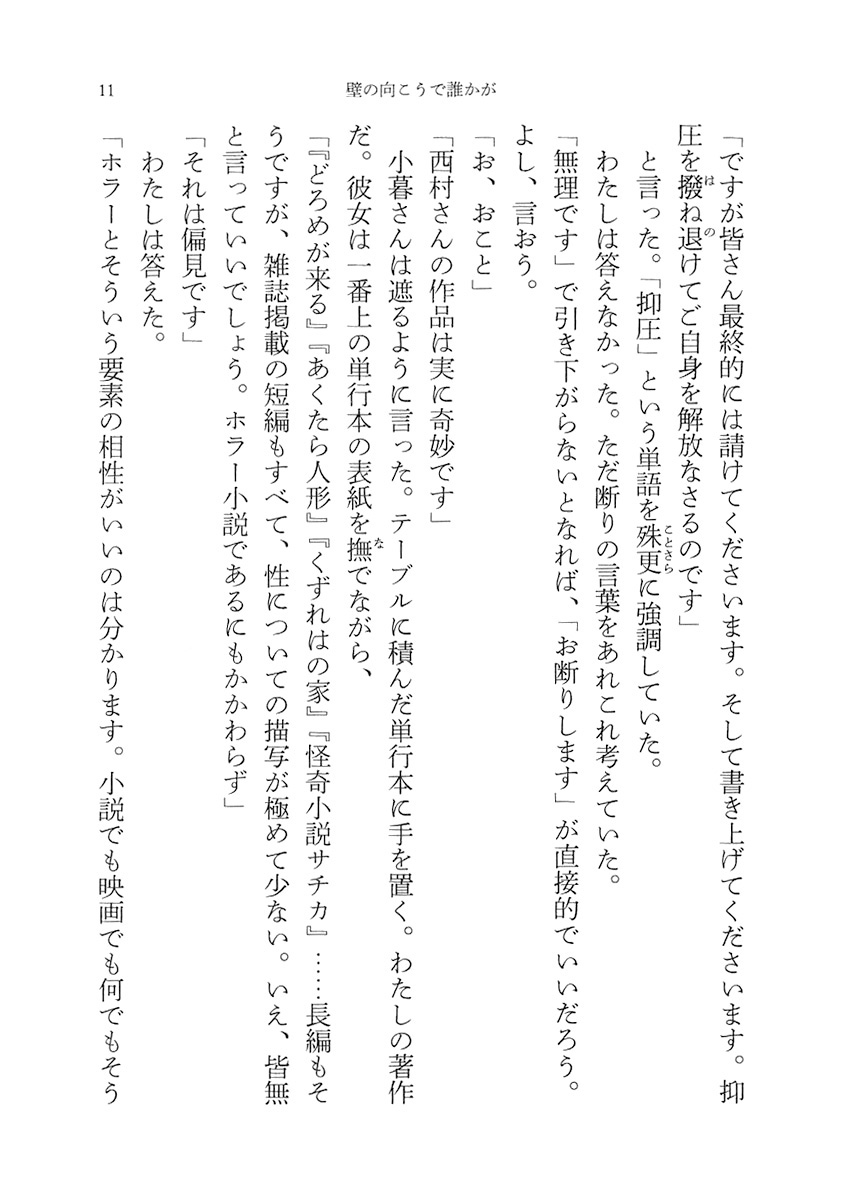 11
壁の向こうで誰かが
「ですが皆さん最終的には請けてくださいます。そして書き上げてくださいます。抑
圧を撥ね退けてご自身を解放なさるのです」
と言った。「抑圧」という単語を殊更に強調していた。
わたしは答えなかった。ただ断りの言葉をあれこれ考えていた。
「無理です」で引き下がらないとなれば、「お断りします」が直接的でいいだろう。
よし、言おう。
「お、おこと」
「西村さんの作品は実に奇妙です」
小暮さんは遮るように言った。テーブルに積んだ単行本に手を置く。わたしの著作
だ。彼女は一番上の単行本の表紙を撫でながら、
「『どろめが来る』『あくたら人形』『くずれはの家』『怪奇小説サチカ』……長編もそ
うですが、雑誌掲載の短編もすべて、性についての描写が極めて少ない。いえ、皆無
と言っていいでしょう。ホラー小説であるにもかかわらず」
「それは偏見です」
わたしは答えた。
「ホラーとそういう要素の相性がいいのは分かります。小説でも映画でも何でもそう